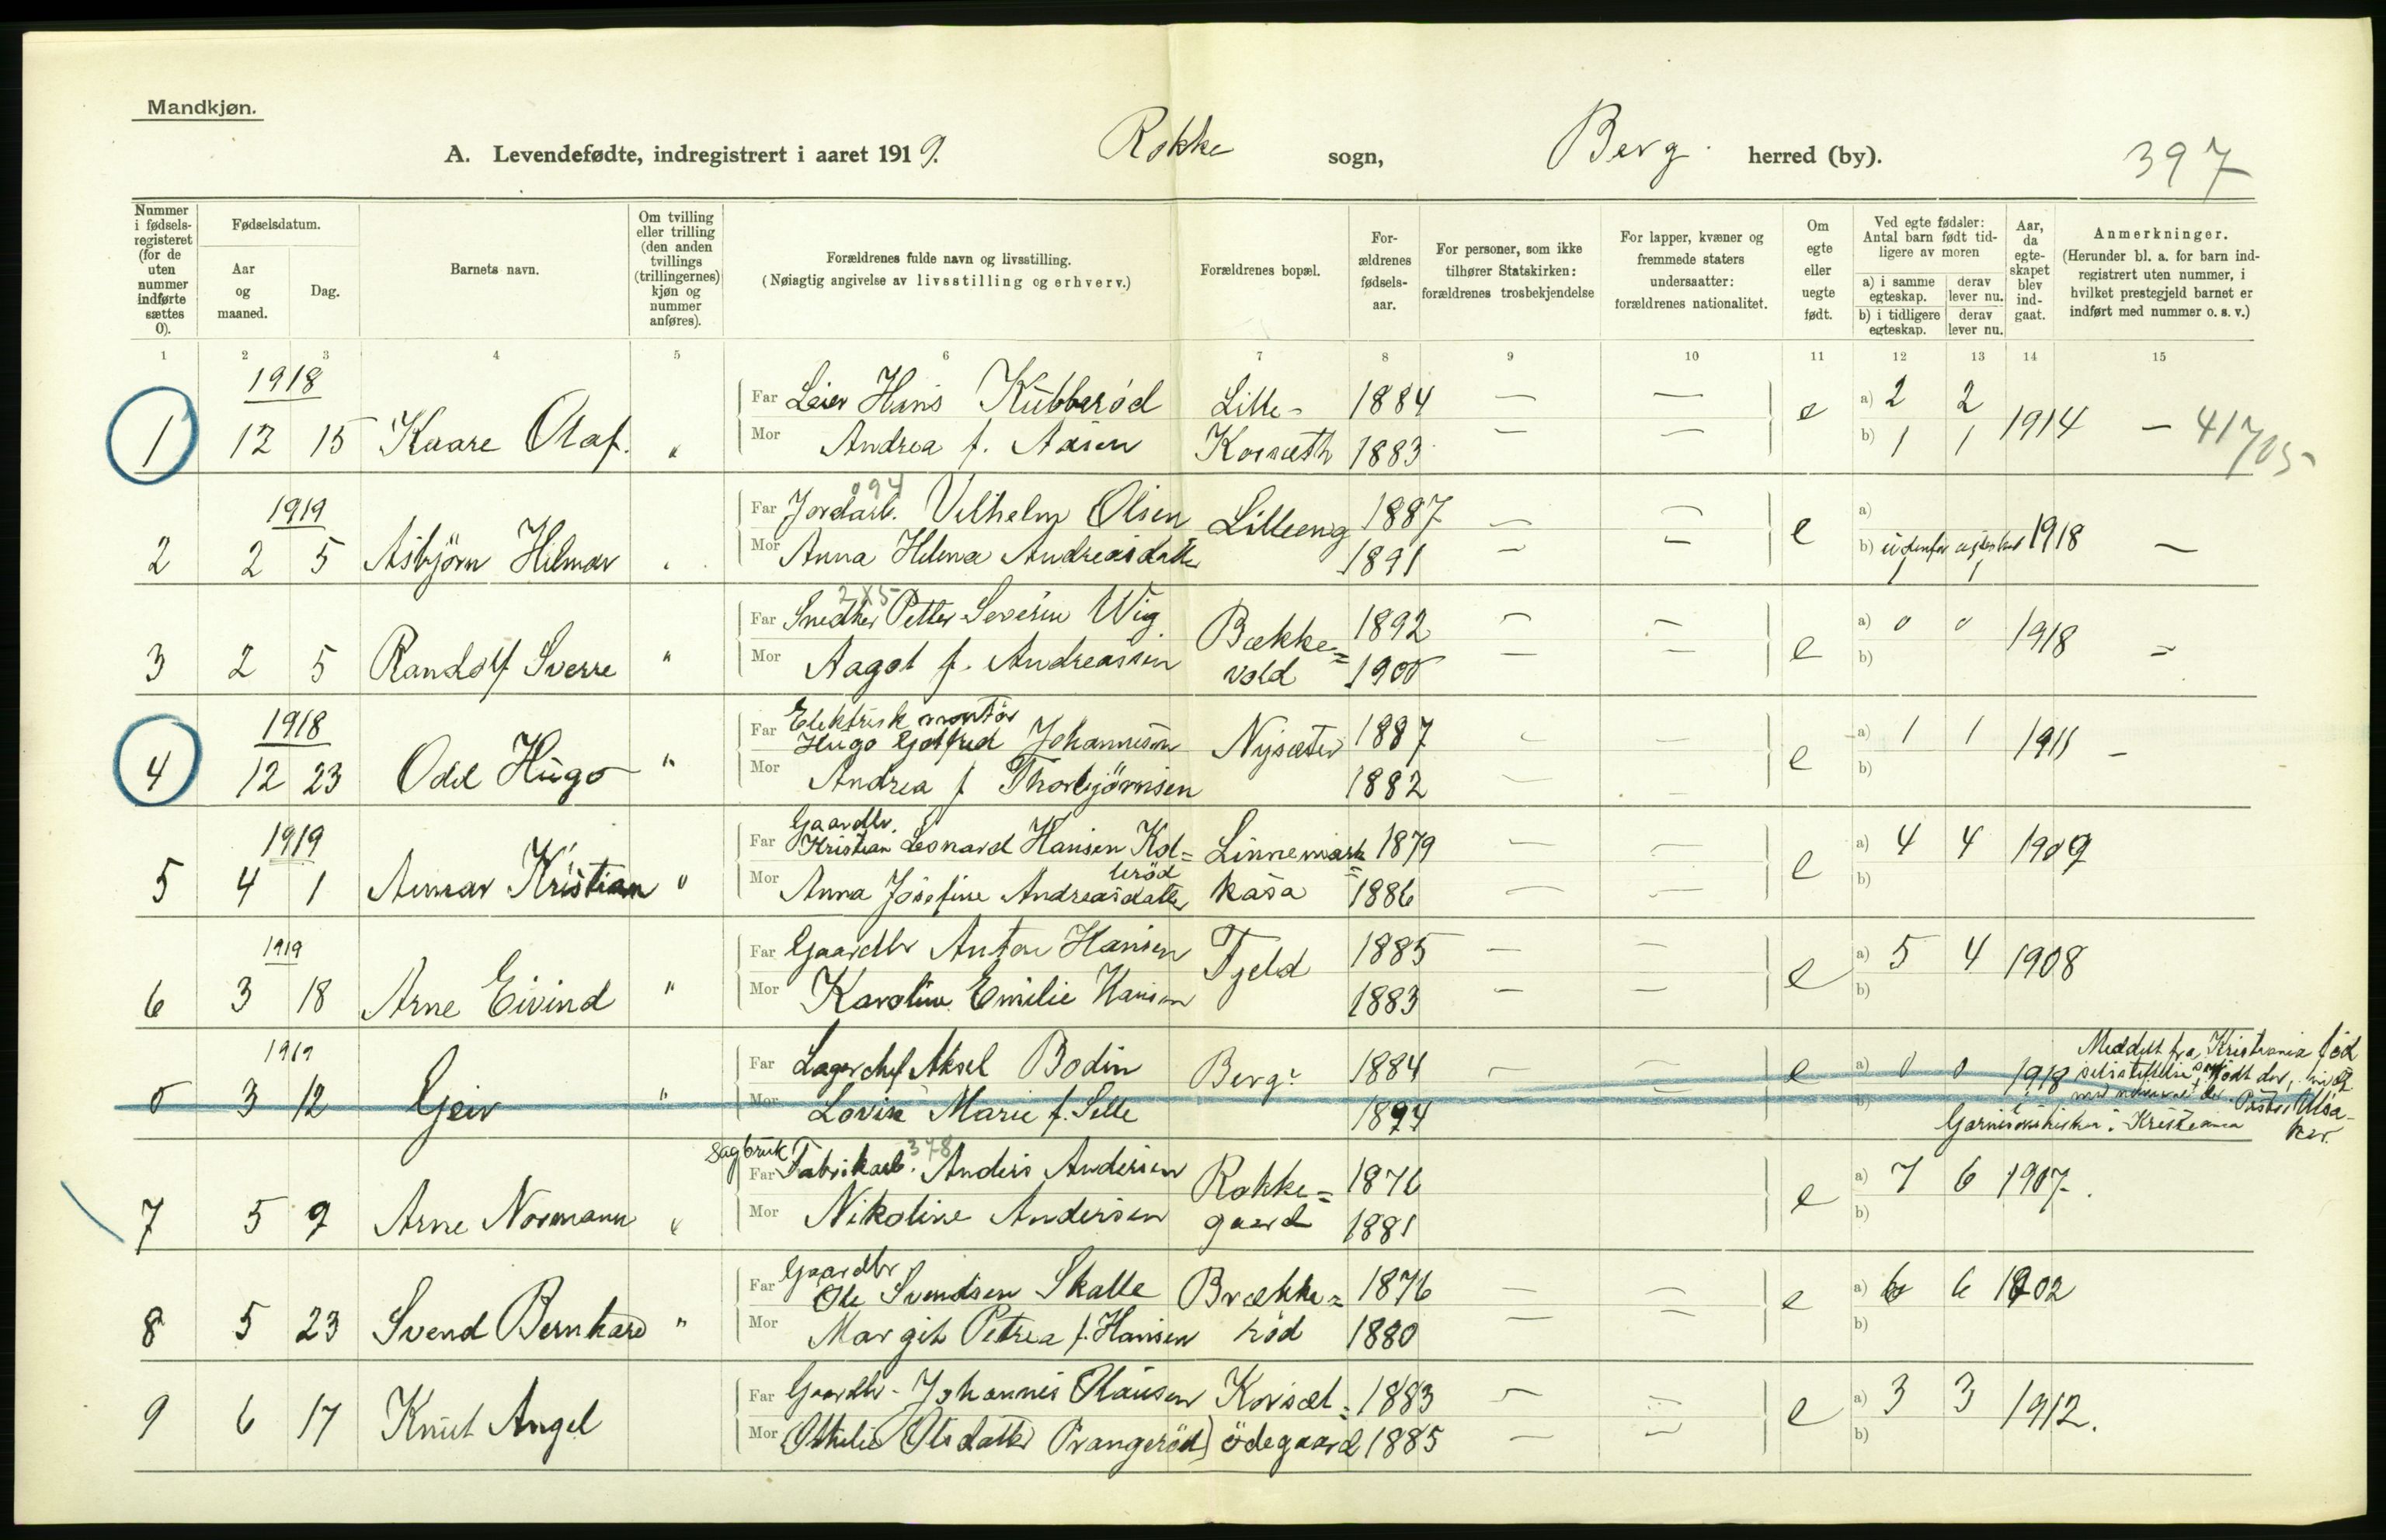 Mandkjøn.
A. Levendefødte, indregistrert i aaret 1919. Rokke sogn, Berg herred (by). 397
Nummer i fødsels-registeret (for de uten nummer indførte sættes 0).
Fødselsdatum.
Aar og maaned.
Dag.
Barnets navn.
Om tvilling eller trilling (den anden tvillings (trillingernes) kjøn og nummer anføres).
Forældrenes fulde navn og livsstilling.
(Nøiagtig angivelse av livsstilling og erhverv.)
Forældrenes bopæl.
For-ældrenes fødsels-aar.
For personer, som ikke tilhører Statskirken: forældrenes trosbekjendelse
For lapper, kvæner og fremmede staters undersaatter: forældrenes nationalitet.
Om egte eller uegte født.
Ved egte fødsler: Antal barn født tid-ligere av moren
a) i samme egteskap. derav lever nu.
b) i tidligere egteskap. derav lever nu.
Aar, da egte-skapet blev ind-gaat.
Anmerkninger.
(Herunder bl. a. for barn ind-registrert uten nummer, i hvilket prestegjeld barnet er indført med nummer o. s. v.)
1 2 3 4 5 6 7 8 9 10 11 12 13 14 15
1918
Far Leier Hans Kübberød Lille- 1884 — — a) 2 2
1 12 15 Kaare Olaf. " Mor Andrea f. Aasen Korsæth 1883 — — e b) 1 1 1914 — 41705
094
1919 Far Jordarb. Vilhelm Olsen Lilleeng 1887 — — a)
2 2 5 Asbjörn Hilmar " Mor Anna Helena Andreasdatter 1891 — — e b) udenfor egteskab 1918 —
1 1
2X5
Far Snedker Petter Severin Wig Bække= 1892 — — a) 0 0
3 2 5 Randolf Sverre " Mor Aagot f. Andreassen vold 1900 — — e b) 1918 =
1918 Far Elektrisk montör
Hugo Gotfred Johannesen Nysæter 1887 — — a) 1 1 1911 —
4 12 23 Odd Hugo " Mor Andrea f Thorbjörnsen 1882 — — e b)
Gaardbr.
1919 Far Kristian Leonard Hansen Kol= Linnemark= 1879 — — a) 4 4 1909
leröd
5 4 1 Kristian " Mor Anna Josefine Andreasdatter kasa 1886 — — e b)
1919 Far Gaardbr Anton Hansen Tjeld 1885 — — a) 5 4 1908
6 3 18 Arne Eivind " Mor Karoline Emilie Hansen 1883 — — e b)
1919 Far Lagerchef Aksel Bodin Berg. 1884 — — e a) 0 0 1918 Meddelt fra Kristiania
0 3 12 Geir " Mor Marie f. Selle 1894 b)
Garnisonskirken i Kristiania
Sagbruk 378
Far Fabrikarb. Anders Andersen Rokke= 1876 a) 7 6 1907.
7 5 9 Arne Normann " Mor Nikoline Andersen gaard 1881 e b)
Gaardbr
Far Ole Svendsen Skalle Brække= 1876 — — a) 6 6 1902
8 5 23 Svend Bernhard " Mor Margit Petrea f. Hansen röd 1880 — — e b)
Far Gaardbr. Johannes Olausen Korsæt= 1883 — — a) 3 3 1912.
9 6 17 Knut Angel Mor Othelie Olsdatter Prangeröd ödegaard 1885 — — e b)